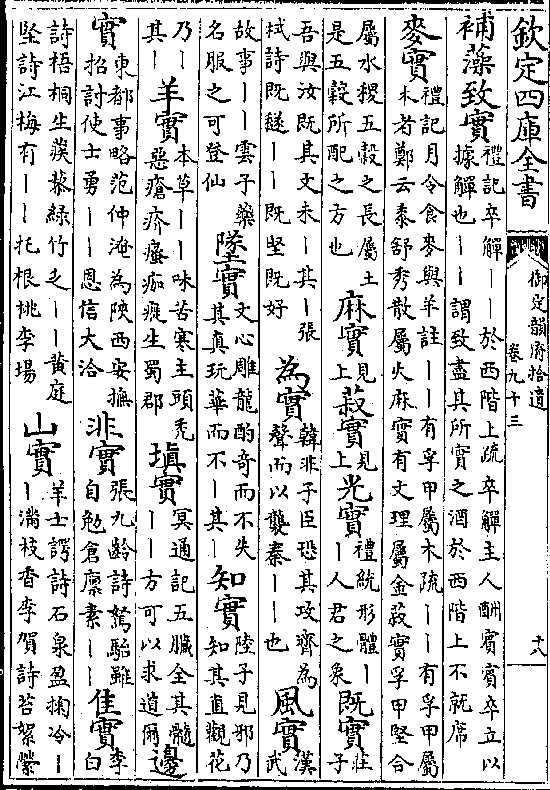 欽定四庫全書
御定韻府拾遺
卷九十三
十八
補藻致實
禮記卒觶——於西階上疏卒觶主人酬賓賓卒立以
據觶也——謂致盡其所實之酒於西階上不就席
麥實
禮記月令食麥與羊註——有孚甲屬木疏——有孚甲屬
木者鄭云黍舒秀散屬火麻實有文理屬金菽實孚甲堅合
屬水稷五穀之長屬土
是五穀所配之方也
麻實
見上
菽實
見上
光實
禮統形體—
—人君之象
既實
莊子
吾與汝既其文未—其—張
栻詩既——既堅既好
為實
韓非子臣恐其攻齊為
聲而以襲秦——也
風實
漢武
故事——雲子藥
名服之可登仙
墜實
文心雕龍酌奇而不失
其真玩華而不—其—
知實
陸子見邪乃
知其直觀花
乃—
其—
羊實
本草——味苦寒主頭禿
惡瘡疥瘙痂癬生蜀郡
填實
冥通記五臟全其髓
——方可以求道爾
邊
實
東都事略范仲淹為陜西安撫
招討使士勇——恩信大洽
非實
張九齡詩駑駘雖
自勉倉廩素——
佳實
李白
詩梧桐生蒺藜綠竹乏——黃庭
堅詩江梅有——托根桃李場
山實
羊士諤詩石泉盈掬冷—
—滿枝香李賀詩苔絮縈